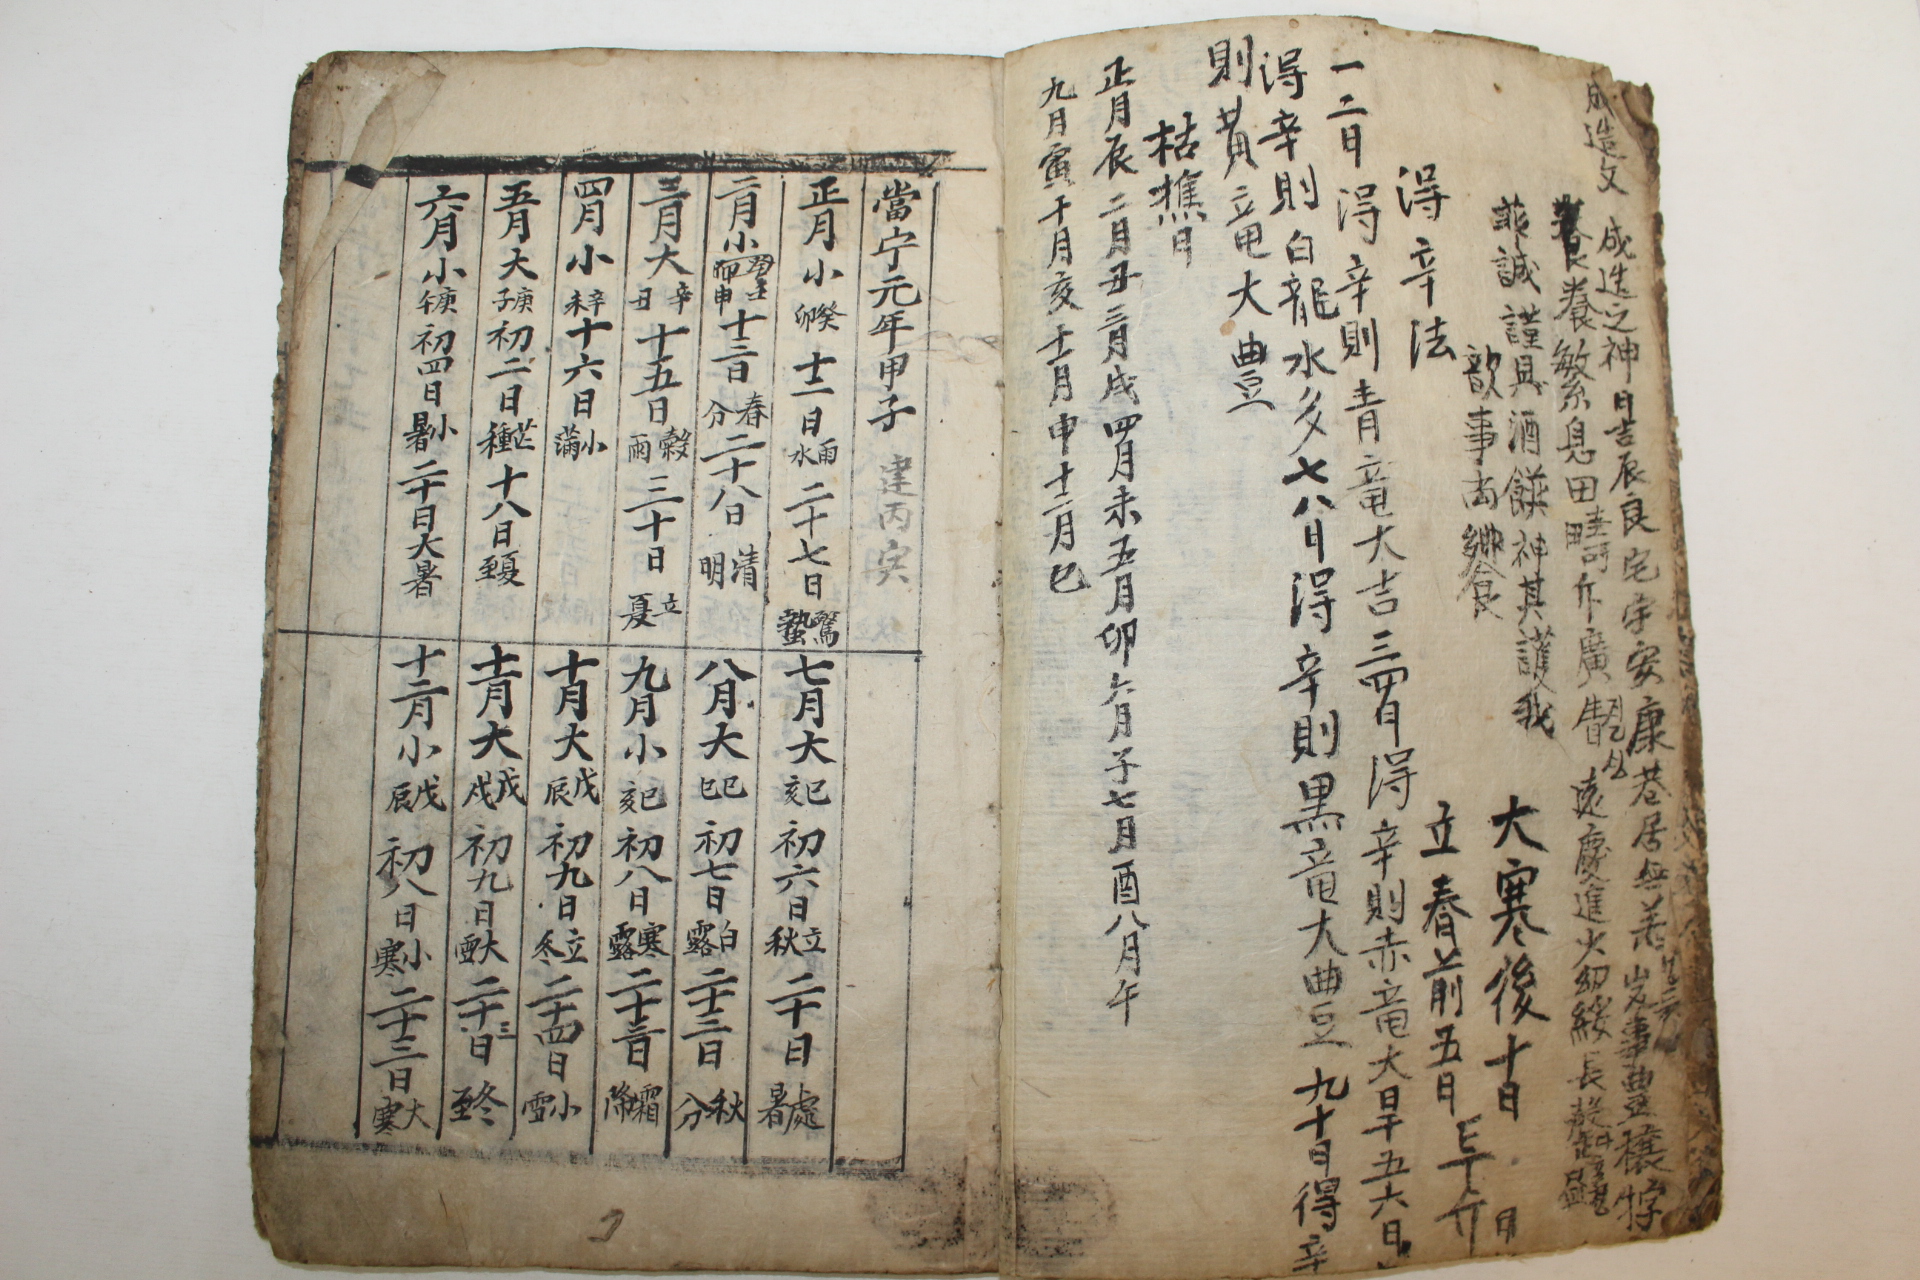 成造文
成造之神日吉辰良宅宇安康巷居無恙岁事豊穰牸
養養繁息田畦 介廣 遠慶進火
誠謹具酒饌神其護我
歆事尚饗
大寒後十日 日
立春前五日
得辛法
一二日得辛則青竜大吉三四日得辛則赤竜大旱五六日
得辛則白龍水多七八日得辛則黒竜大豊九十日得辛
則黄竜大豊
枯樵日
正月辰二月丑三月戌四月未五月卯六月子七月酉八月午
九月寅十月亥十一月申十二月巳
當宁元年甲子 建丙寅
正月小 癸卯 十二日 雨水 二十七日 驚蟄
二月小 壬申 十三日 春分 二十八日 清明
三月大 辛丑 十五日 穀雨 三十日 立夏
四月小 辛未 十六日 小滿
五月大 庚子 初二日 芒種 十八日 夏至
六月小 庚午 初四日 小暑 二十日大暑
七月大 己亥 初六日 立秋 二十日 處暑
八月大 己巳 初七日 白露 二十三日 秋分
九月小 己亥 初八日 寒露 二十三日 霜降
十月大 戊辰 初九日 立冬 二十四日 小雪
十一月大 戊戌 初九日 大雪 二十三日 冬至
十二月小 戊辰 初八日 小寒 二十三日 大寒